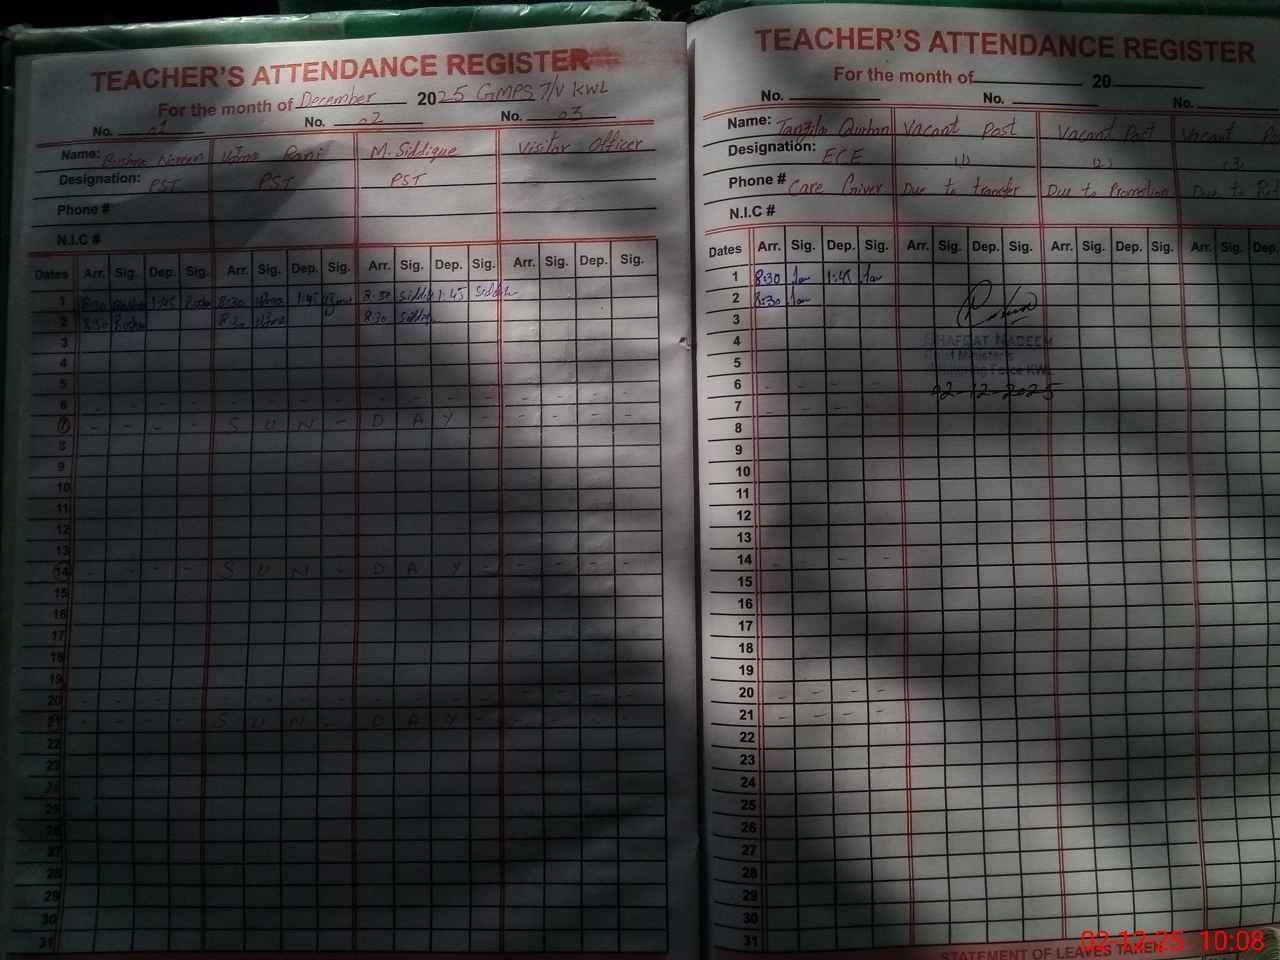 TEACHER'S ATTENDANCE REGISTER
For the month of December 2025 GMPS 7/V KWL
No. 01 No. 02 No. 03
Name: Bushra Noreen Uzma Rani M. Siddique Visitor Officer
Designation: PST PST PST
Phone #
N.I.C #
Dates Arr. Sig. Dep. Sig. Arr. Sig. Dep. Sig. Arr. Sig. Dep. Sig. Arr. Sig. Dep. Sig.
1 8:30 1:45 8:30 1:45 8:30 1:45
2 8:30 8:30 8:30
3
4
5
6 - - - - - - - - - - - - - - - -
7 - - - - S U N - D A Y - - - - -
8
9
10
11
12
13
14 - - - - S U N - D A Y - - - - -
15
16
17
18
19
20 - - - - - - - - - - - - - - - -
21 - - - - S U N - D A Y - - - - -
22
23
24
25
26
27
28
29
30
31
TEACHER'S ATTENDANCE REGISTER
For the month of 20
No. No. No.
Name: Tanzila Qurban Vacant Post Vacant Post Vacant
Designation: ECE (1) (2) (3)
Phone # Care Giver Due to transfer Due to Promotion Due to
N.I.C #
Dates Arr. Sig. Dep. Sig. Arr. Sig. Dep. Sig. Arr. Sig. Dep. Sig. Arr. Sig. Dep.
1 8:30 1:45
2 8:30
3
4 NADEEM
5 Chief Minister's
6 - - - Monitoring Force KWL
02-12-2025
7 - - -
8
9
10
11
12
13
14 - - - -
15
16
17
18
19
20 - - - -
21 - - - -
22
23
24
25
26
27
28
29
30
31
STATEMENT OF LEAVES TAKEN
02-12-25 10:08